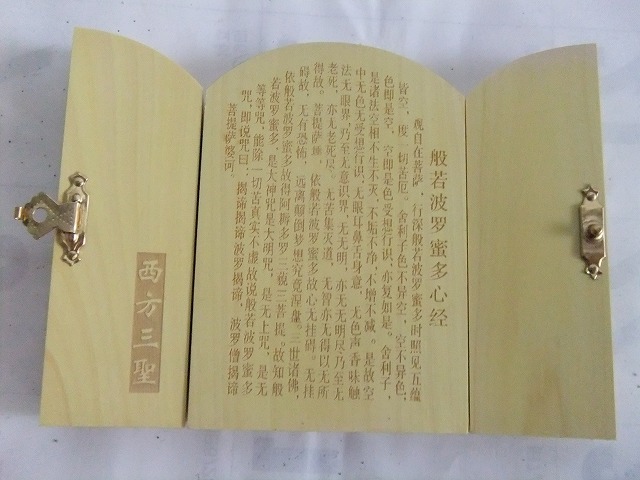 般若波罗蜜多心经
观自在菩萨，行深般若波罗蜜多时照见五蕴
皆空，度一切苦厄。舍利子色不异空，空不异色，
色即是空，空即是色受想行识，亦复如是。舍利子，
是诸法空相不生不灭、不垢不净，不增不减。是故空
中无色无受想行识，无眼耳鼻舌身意，无色声香味触
法无眼界，乃至无意识界，无无明，亦无无明尽乃至无
老死，亦无老死尽。无苦集灭道，无智亦无得以无所
得故。菩提萨埵，依般若波罗蜜多故心无挂碍。无挂
碍故，无有恐怖，远离颠倒梦想究竟涅盘三世诸佛，
依般若波罗蜜多故得阿耨多罗三藐三菩提。故知般
若波罗蜜多，是大神咒是大明咒，是无上咒，是无
等等咒，能除一切苦真实不虚故说般若波罗蜜多
咒，即说咒曰：揭谛揭谛波罗揭谛，波罗僧揭谛
菩提萨婆诃。
西方三聖